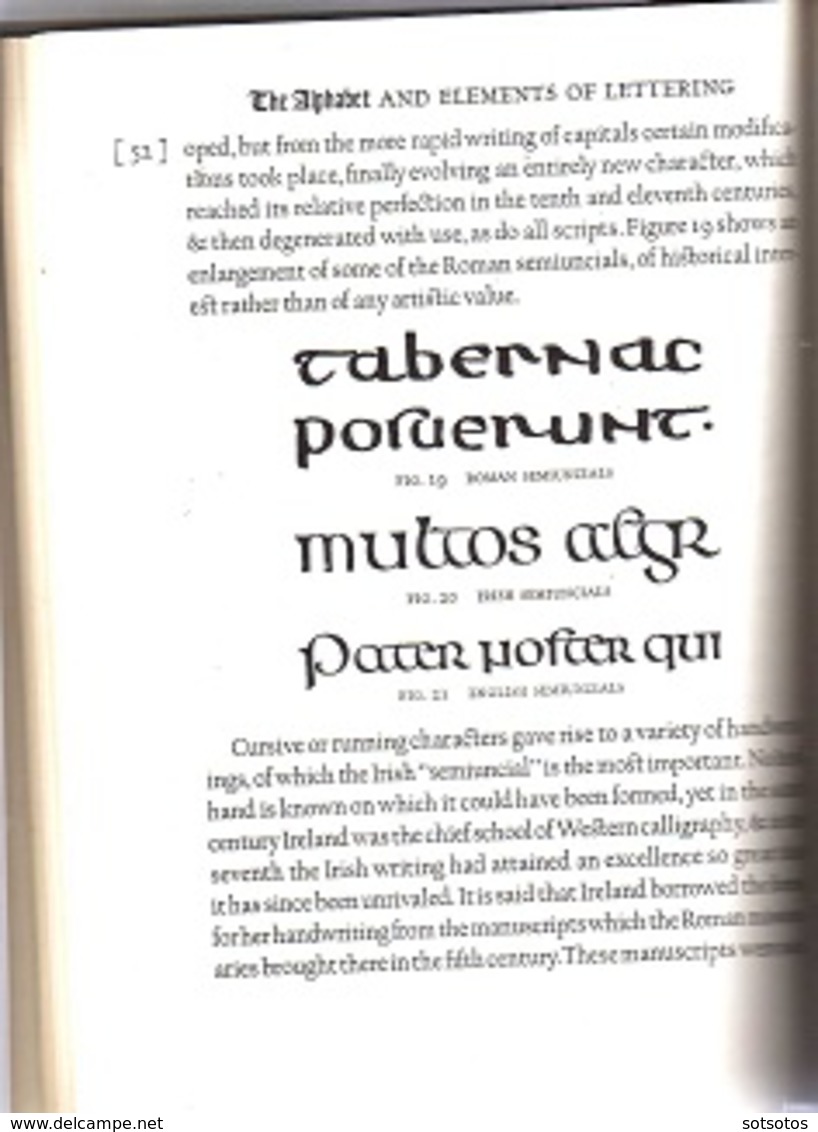 The Alphabet AND ELEMENTS OF LETTERING
[ 52 ] oped, but from the more rapid writing of capitals certain modifica-
tions took place, finally evolving an entirely new character, which
reached its relative perfection in the tenth and eleventh centuries,
& then degenerated with use, as do all scripts. Figure 19 shows an
enlargement of some of the Roman semiuncials, of historical inter-
est rather than of any artistic value.
tabernac
posuerunt.
FIG. 19 ROMAN SEMIUNCIALS
multos algr
FIG. 20 IRISH SEMIUNCIALS
Pater noster qui
FIG. 21 ENGLISH SEMIUNCIALS
Cursive or running characters gave rise to a variety of
ings, of which the Irish "semiuncial" is the most important.
hand is known on which it could have been formed, yet in the
century Ireland was the chief school of Western calligraphy, &
seventh the Irish writing had attained an excellence so
it has since been unrivaled. It is said that Ireland borrowed
for her handwriting from the manuscripts which the Roman
aries brought there in the fifth century. These manuscripts
www.delcampe.net
sotsotos